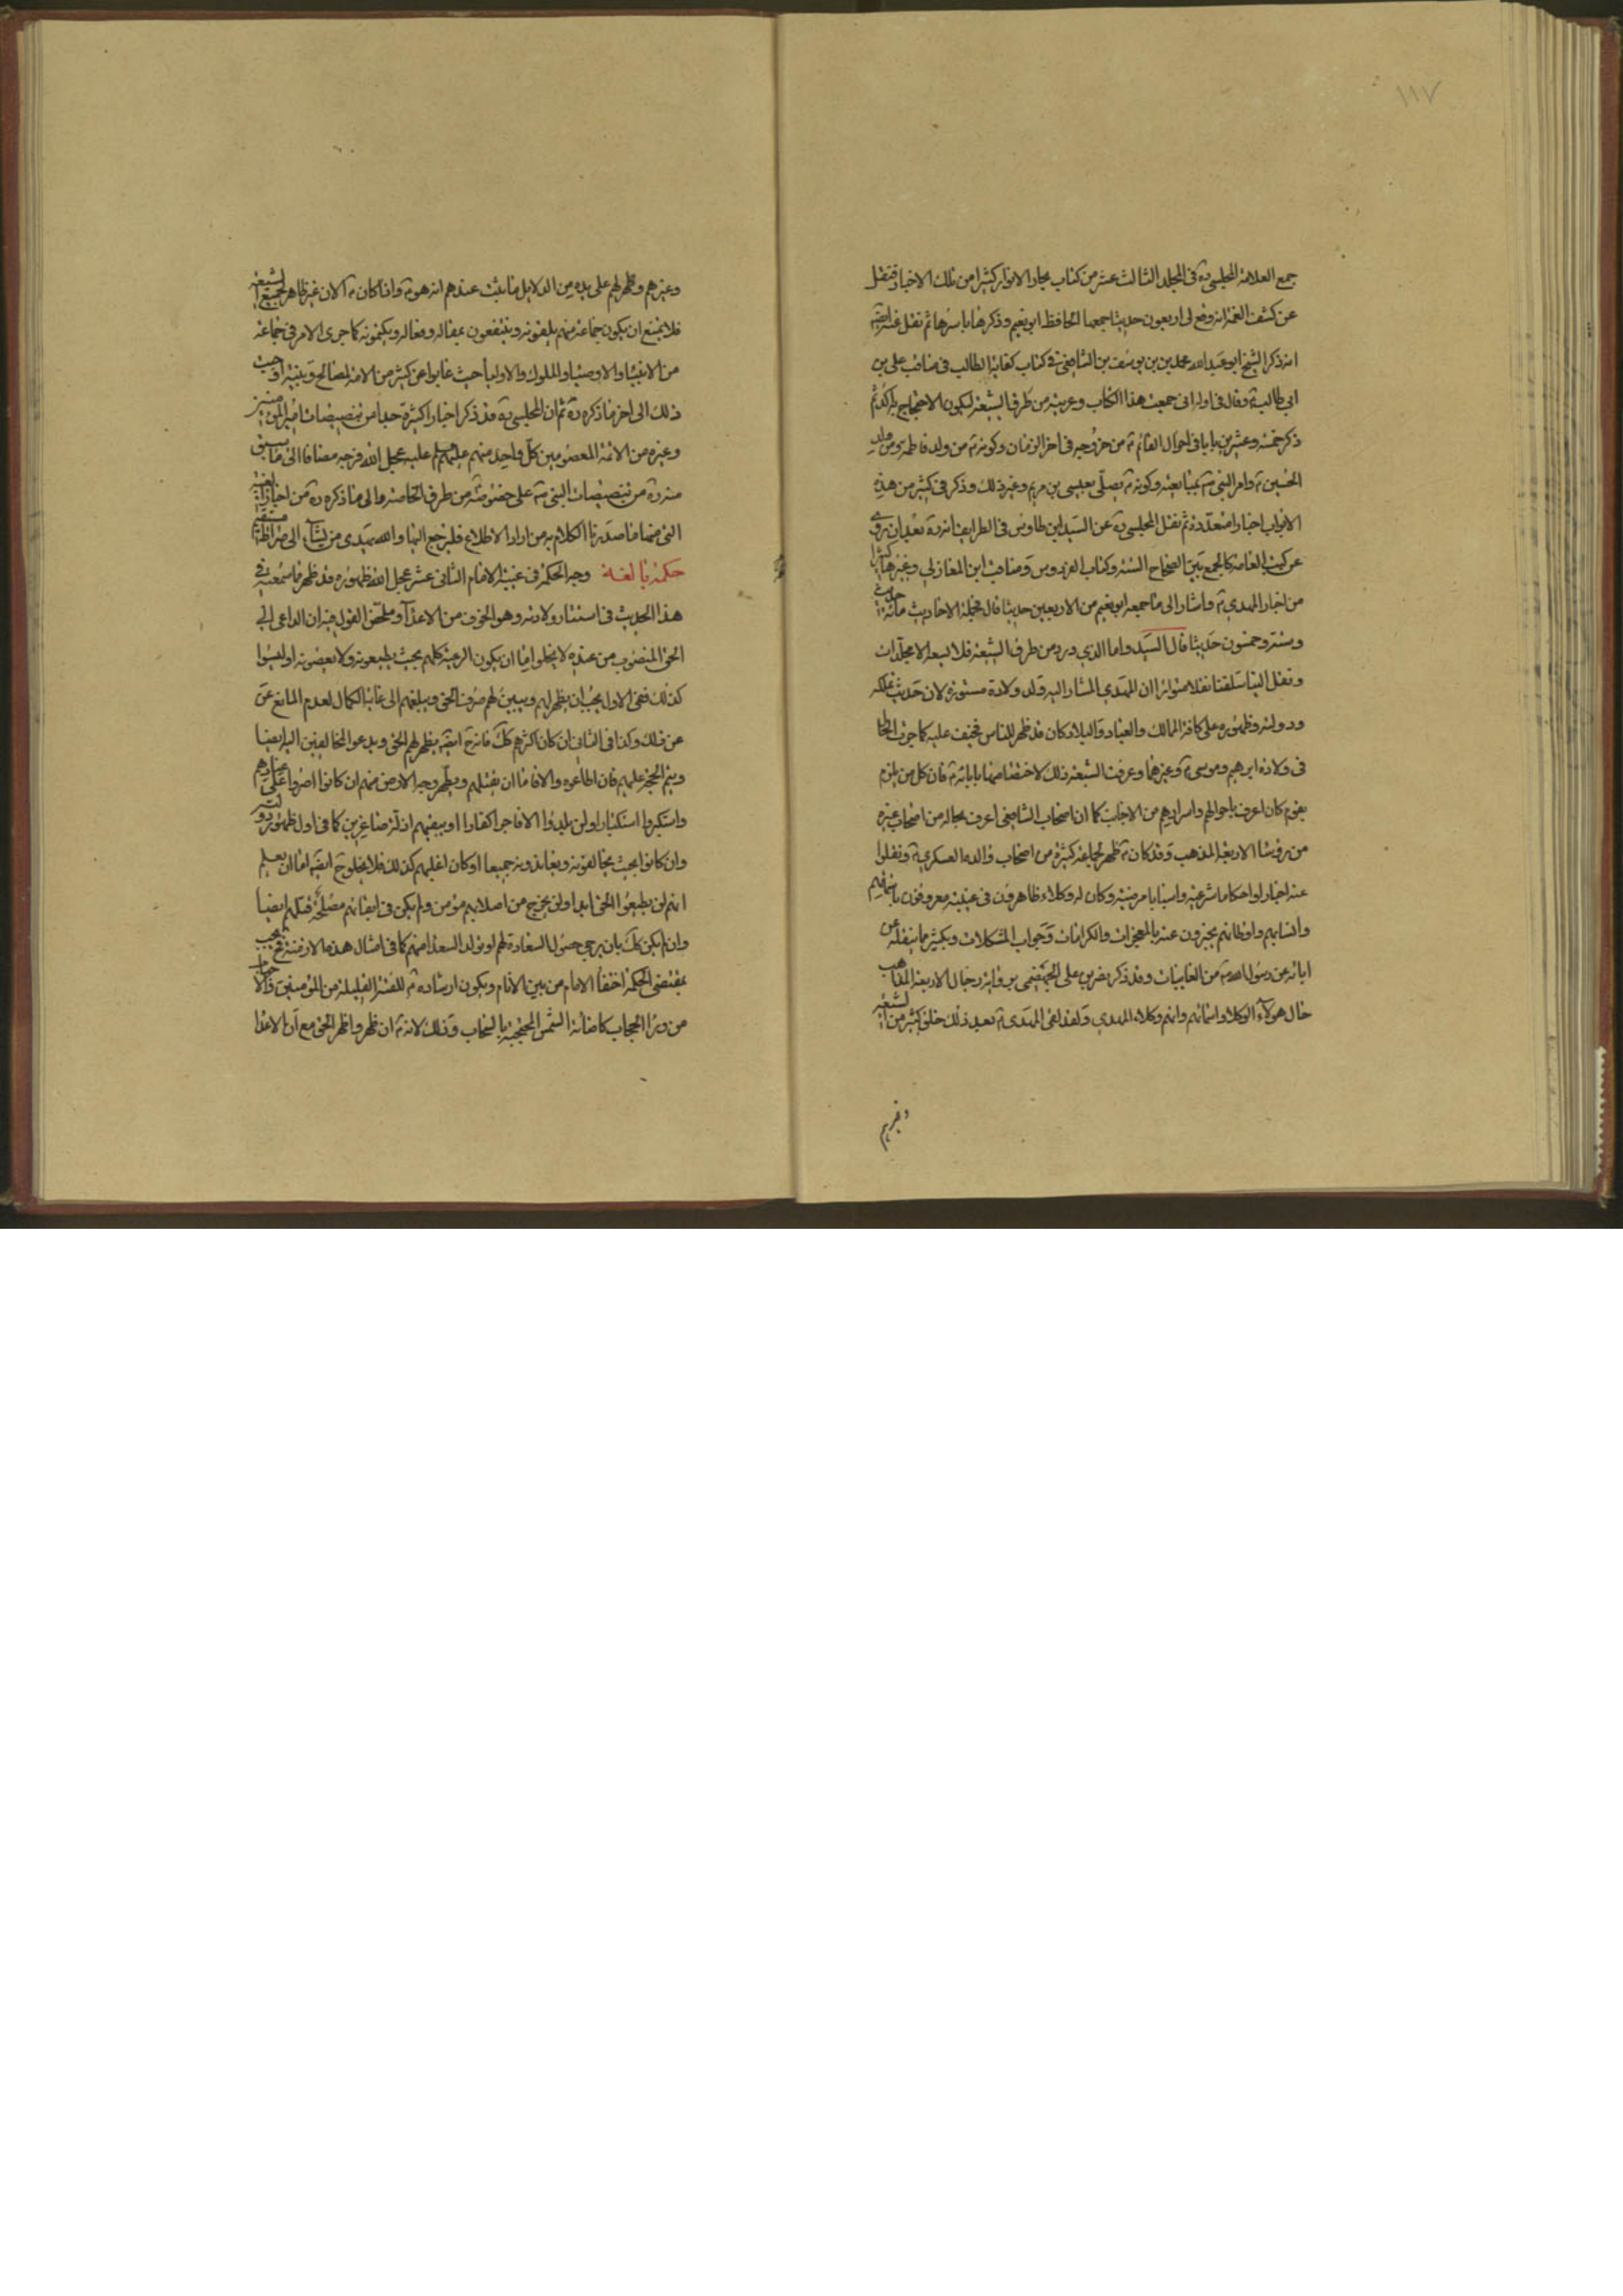 ١١٧
جمع العلامة المجلسي ره فى المجلد الثالث عشر من كتاب بحار الانوار كثيرا من تلك الاخبار فنقل
عن كشف الغمة انه وقع لى اربعون حديثا جمعها الحافظ ابو نعيم وذكرها باسرها ثم نقل عنه ايضا
انه ذكر الشيخ ابو عبد الله محمد بن يوسف بن الشافعى فى كتاب كفاية الطالب فى مناقب على بن
ابى طالب ع وقال فى اوله انى جمعت هذا الكتاب وعريته من طرق الشيعة ليكون الاحتجاج به اكد ثم
ذكر خمسة وعشرين بابا فى احوال القائم ع من خروجه فى اخر الزمان وكونه ع من ولد فاطمة ومن ولد
الحسين ع وامر النبى ص بمبايعته وكونه ع يصلى بعيسى بن مريم وغير ذلك وذكر فى كثير من هذه
الابواب اخبارا متعددة ثم نقل المجلسى ره عن السيد ابن طاوس فى الطرايف انه ره بعد ان روى
عن كتب العامة كالجمع بين الصحاح الستة وكتاب الفردوس ومناقب ابن المغازلى وغيرها كثيرا
من اخبار المهدى ع واشار الى ما جمعه ابو نعيم من الاربعين حديثا قال فجملة الاحاديث مائة حديث
وستة وخمسون حديثا قال السيد واما الذى ورد من طرق الشيعة فلا يسعه الا مجلدات
ونقل الينا سلفنا نقلا متواترا ان المهدى المشار اليه ولد ولادة مستورة لان حديث تملكه
ودولته وظهوره على كافة الممالك والعباد والبلاد كان قد ظهر للناس فخيف عليه كما جرت الحال
فى ولادة ابرهيم وموسى ع وغيرهما وعرفت الشيعة ذلك لاختصاصها بابائه ع فان كل من يلزم
بقوم كان اعرف باحوالهم واسرارهم من الاجانب كما ان اصحاب الشافعى اعرف بحاله من اصحاب غيره
من رؤسا الاربعة المذهب وقد كان ع ظهر لجماعة كثيرة من اصحاب والده العسكرى ع ونقلوا
عنه اخبارا واحكاما شرعية واسبابا مرضية وكان له وكلاء ظاهرون فى غيبته معروفون باسمائهم
وانسابهم واوطانهم يخبرون عنه بالمعجزات والكرامات وجواب المشكلات وبكثير مما ينقله عن
ابائه عن رسول الله ص من الغايبات وقد ذكر نصر بن على الجهضمى برواية رجال الاربعة المذاهب
حال هولاء الوكلاء واسمائهم وانهم وكلاء المهدى ولقد لقى المهدى ع بعد ذلك خلق كثير من الشيعة
وغيرهم
وغيرهم وظهر لهم على يده من الدلايل ما ثبت عندهم انه هو ع واذا كان ع الان غير ظاهر لجميع الشيعة
فلا يمتنع ان يكون جماعة منهم يلقونه وينتفعون بمقاله وفعاله ويكتمونه كما جرى الامر فى جماعة
من الانبيا والاوصيا والملوك والاوليا حيث غابوا عن كثير من الامة لمصالح دينية اوجبت
ذلك الى اخر ما ذكره ره ثم ان المجلسى ره قد ذكر اخبارا كثيرة جدا من تنصيصات امير المومنين
وغيره من الائمة المعصومين كل واحد منهم عليهم السلم عليه عجل الله فرجه مضافا الى ما سبق
منه ره من تنصيصات النبى ص على خصوصه من طرق الخاصة والى ما ذكره ره من اخبار
التى منها ما صدرنا الكلام به من اراد الاطلاع فليرجع اليها والله يهدى من يشاء الى صراط مستقيم
حكمة بالغة وجه الحكمة فى غيبة الامام الثانى عشر عجل الله ظهوره قد ظهر مما سمعته فى
هذا الحديث فى استتار ولادته وهو الخوف من الاعداء وملخص القول فيه ان الداعى الى
الحق المنصوب من عنده لا يخلو اما ان يكون الرعية كلهم بحيث يطيعونه ولا يعصونه اوليسوا
كذلك فعى الاول يجب ان يظهر لهم ويبين لهم صرف الحق ويبلغهم الى غاية الكمال لعدم المانع عن
عن ذلك وكذا فى الثانى ان كان اكثرهم كك فانه ح ايضا يظهر لهم الحق ويدعو المخالفين اليه ايضا
ويتم الحجة عليهم فان اطاعوه والا فاما ان يقتلهم ويطهر وجه الارض منهم ان كانوا اصروا على عنادهم
واستكبروا استكبارا ولن يلدوا الا فاجرا كفارا او يبقيهم اذلة صاغرين كما فى اول ظهور
وان كانوا بحيث يخالفونه ويعاندونه جميعا او كان اغلبهم كذلك فلا يخلو ح ايضا اما ان يعلم
انهم لن يطيعوا الحق ابدا ولن يخرج من اصلابهم مؤمن ولم يكن فى ابقائهم مصلحة قتلهم ايضا
وان لم يكن كك بان يرجى حصول السعادة لهم او تولد السعدا منهم كما فى امثال هذه الازمنة فح يجب
بمقتضى الحكمة اختفاء الامام من بين الانام ويكون ارشاده ع للفئة القليلة من المؤمنين
من وراء الحجاب كاضائة الشمس المحتجبة بالسحاب وذلك لانه ع ان ظهر واظهر الحق مع ان الاعدا